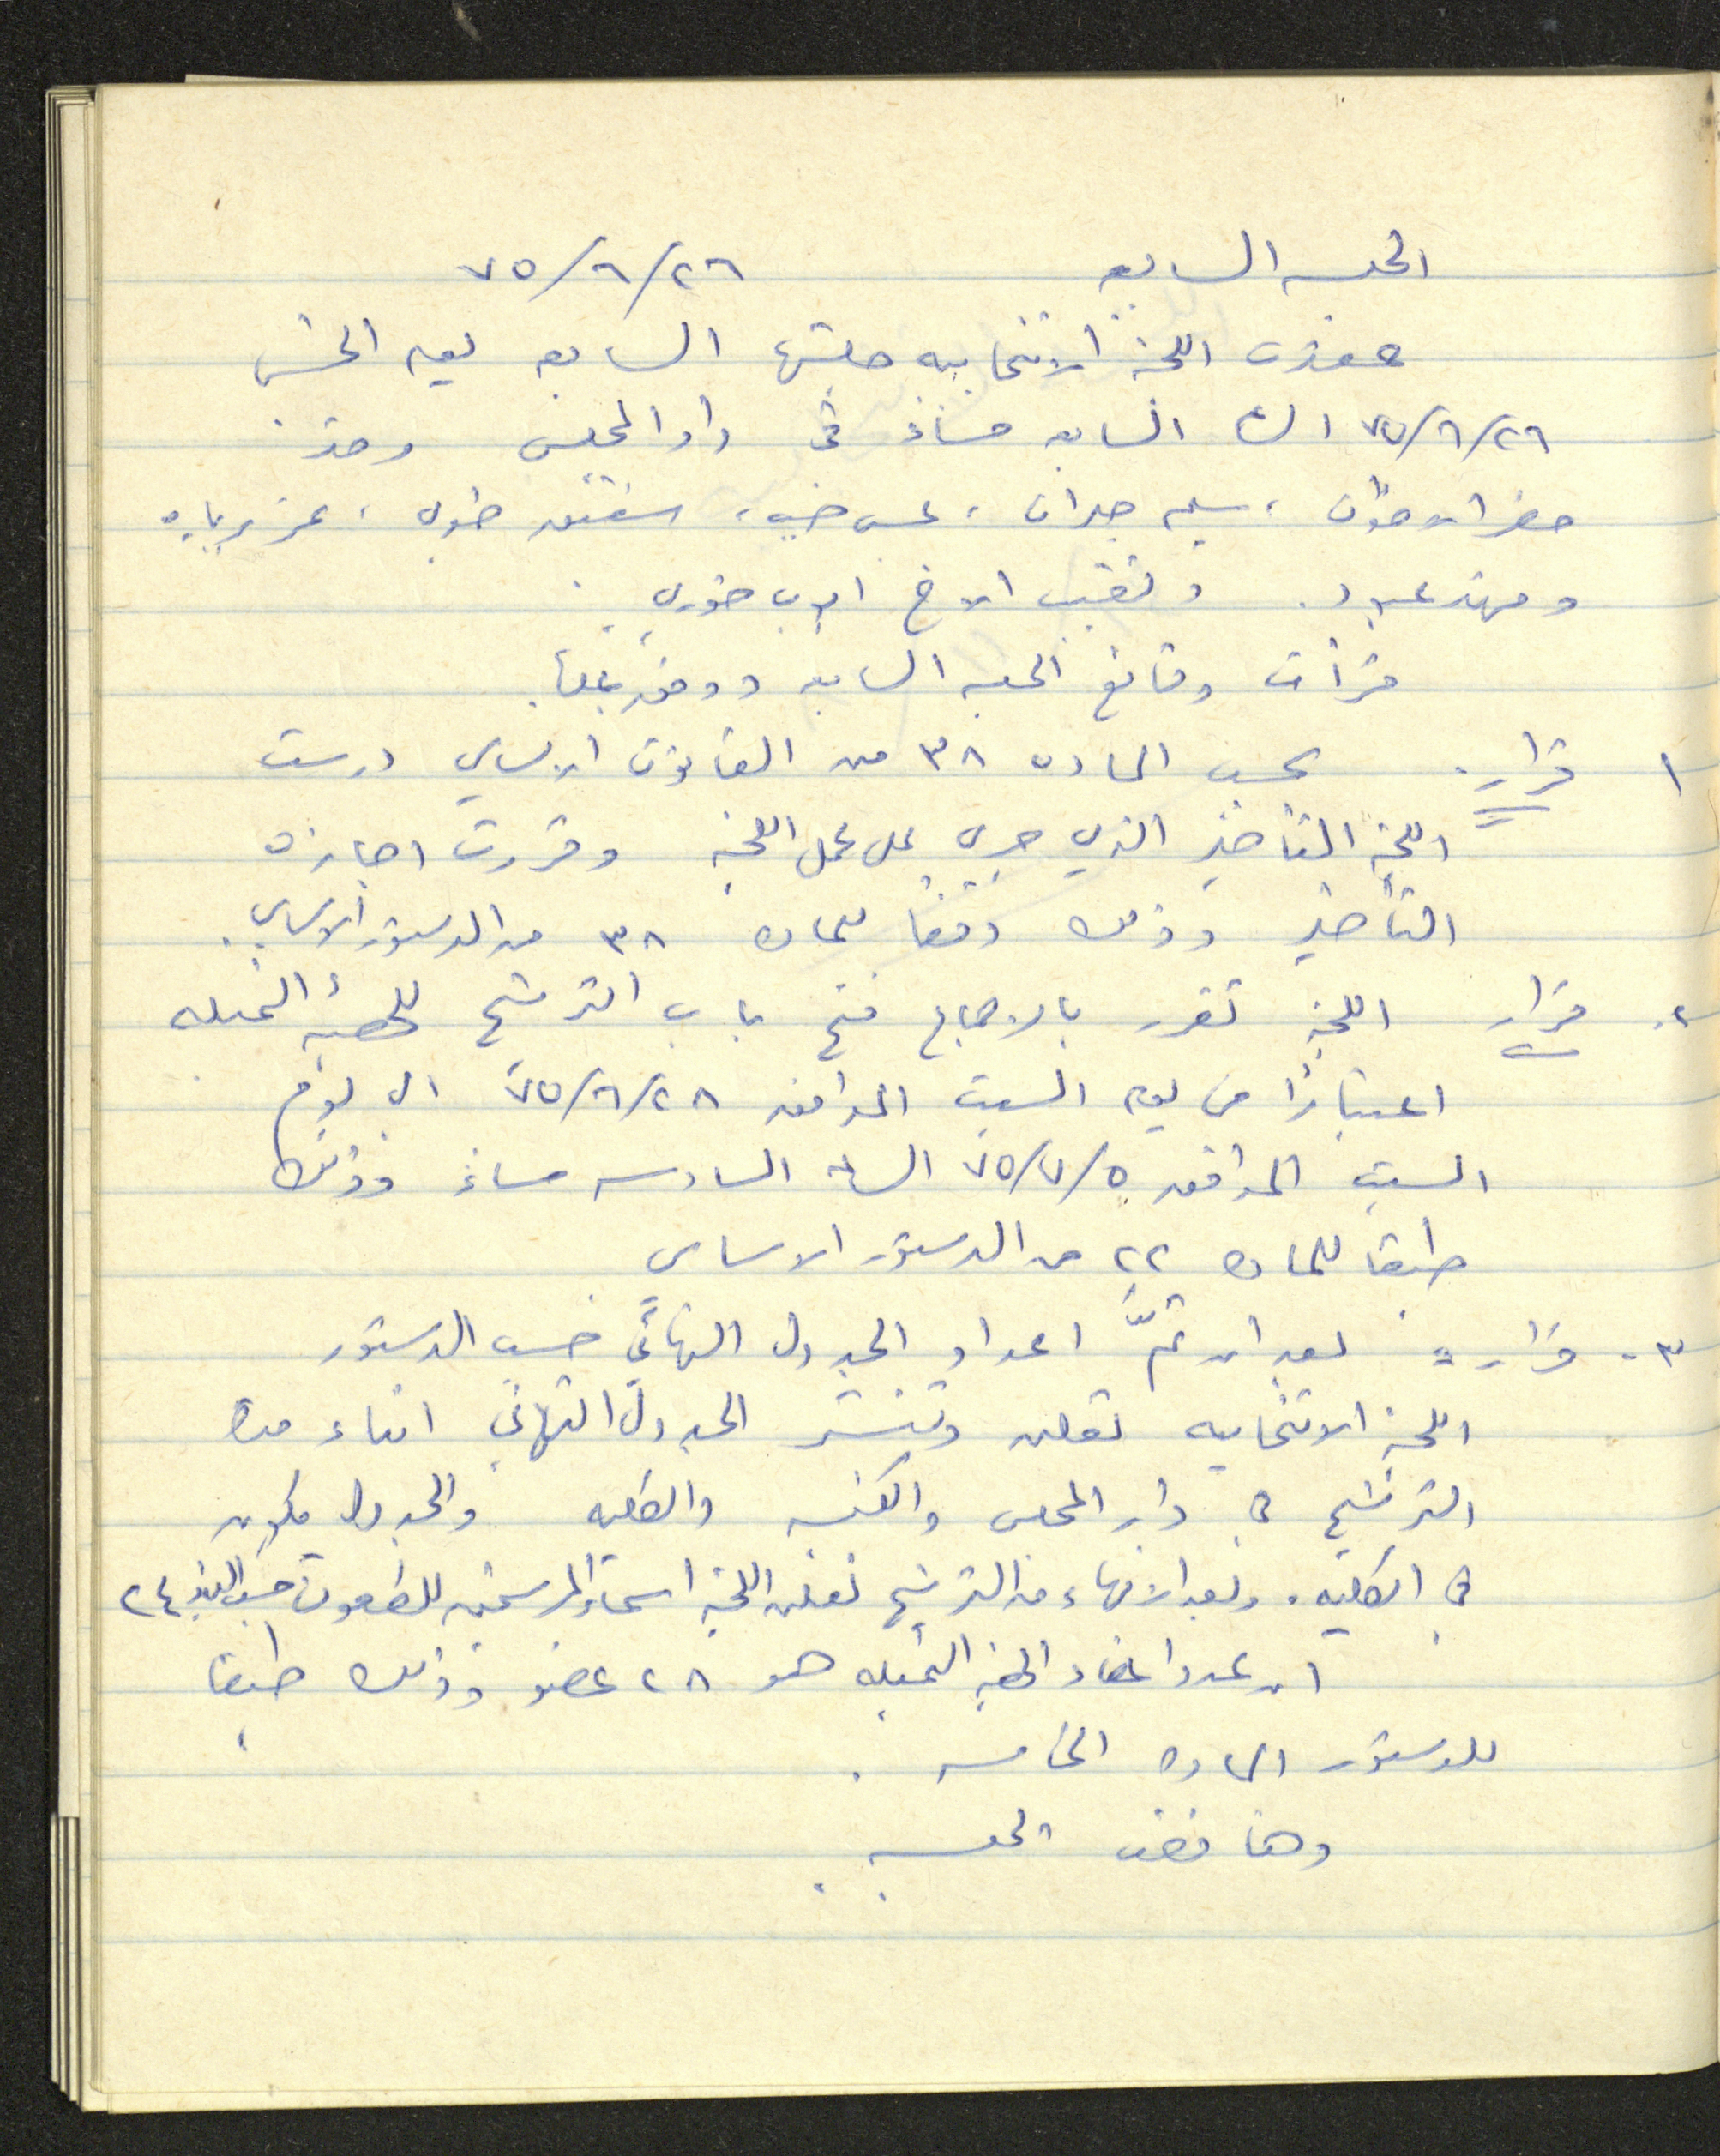 الجلسه السابعه ٧٥/٦/٢٦
عقدت اللجنة الانتخابيه جلستها السابعه يوم الخميس
٧٥/٦/٢٦ الساعة السابعه مساءً في دار المجلس وقد
حضر الاخوان ، سليم جبران ، شفيق خوري ،
و عبود . وتغيب الاخ اديب خوري .
قرأت وقائع الجلسه السابقه وووفق عليها .
١ قرار . بحسب الماده ٣٨ من القانون الاساسي درست
اللجنة التأخير الذي جرى على عمل اللجنه وقررت اجازة
التأخير وذلك وفقا للماده ٣٨ من الدستور الاساسي .
٢. قرار اللجنة تقرر بالاجماع فتح باب الترشيح للهيئة الممثله
اعتبارًا من يوم السبت الموافق ٧٥/٦/٢٨ الى يوم
السبت الموافق ٧٥/٧/٥ الساعة السادسه مساءً وذلك
طبقا للماده ٢٢ من الدستور الاساسي
٣ - قرار = بعد ان تمّ اعداد الجدول النهائي حسب الدستور
اللجنة الانتخابيه تعلن وتنشر الجدول النهائي اثناء مدة
الترشيح في دار المجلس والكنيسه والكليه والجدول يكون
في الكليه . وبعد الانتهاء من الترشيح تعلن اللجنة اسماء المرشحين للطعون حسب البند ٢٤
ان عدد اعضاء الهيئة الممثله هو ٢٨ عضو وذلك طبقا
للدستور الماده الخامسه .
وهنا فضت الجلسه .